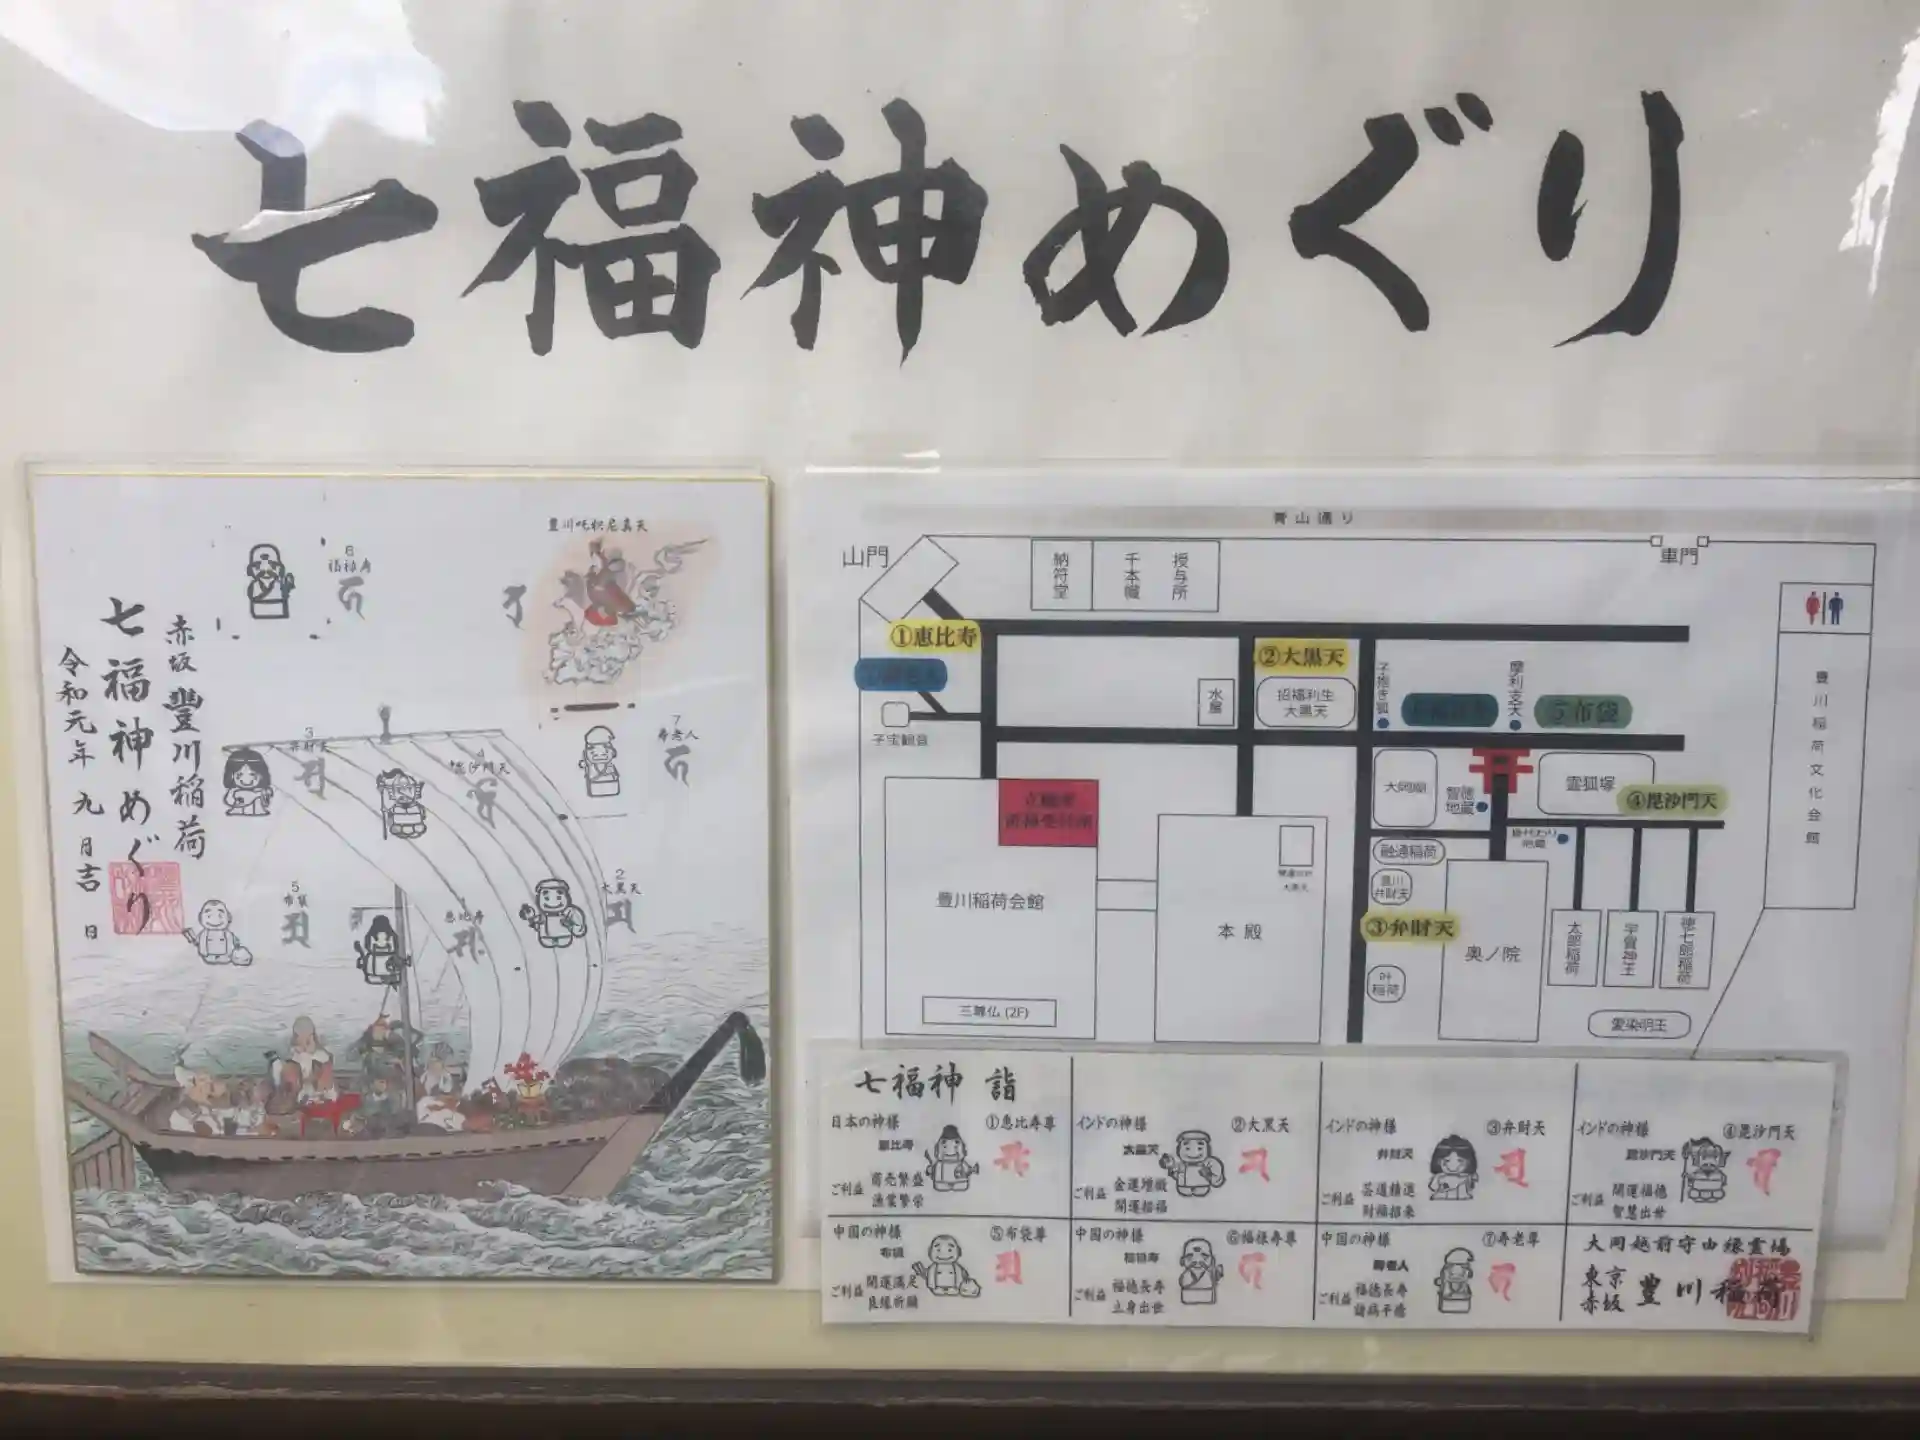 七福神めぐり
豊川吒枳尼真天
6
福禄寿
赤坂 豊川稲荷
七福神めぐり
令和元年 九月吉日
3
弁財天
4
毘沙門天
7
寿老人
5
布袋
1
恵比寿
2
大黒天
青山通り
山門
納符堂
千本幟
授与所
車門
①恵比寿
②大黒天
招福利生
大黒天
水屋
子宝観音
子抱き狐
摩利支天
⑤布袋
大岡廟
智徳
地蔵
霊狐塚
④毘沙門天
身代わり
地蔵
融通稲荷
豊川
弁財天
③弁財天
叶
稲荷
奥ノ院
太郎稲荷
宇賀神王
徳七郎稲荷
愛染明王
豊川稲荷文化会館
豊川稲荷会館
三尊仏 (2F)
本殿
七福神 詣
日本の神様
①恵比寿尊
恵比寿
ご利益
商売繁盛
漁業繁栄
インドの神様
②大黒天
大黒天
ご利益
金運増徴
開運招福
インドの神様
③弁財天
弁財天
ご利益
芸道精進
財福招来
インドの神様
④毘沙門天
毘沙門天
ご利益
開運福徳
智慧出世
中国の神様
⑤布袋尊
布袋
ご利益
開運満足
良縁祈願
中国の神様
⑥福禄寿尊
福禄寿
ご利益
福徳長寿
立身出世
中国の神様
⑦寿老尊
寿老人
ご利益
福徳長寿
諸病平癒
大岡越前守由縁霊場
東京
赤坂
豊川稲荷